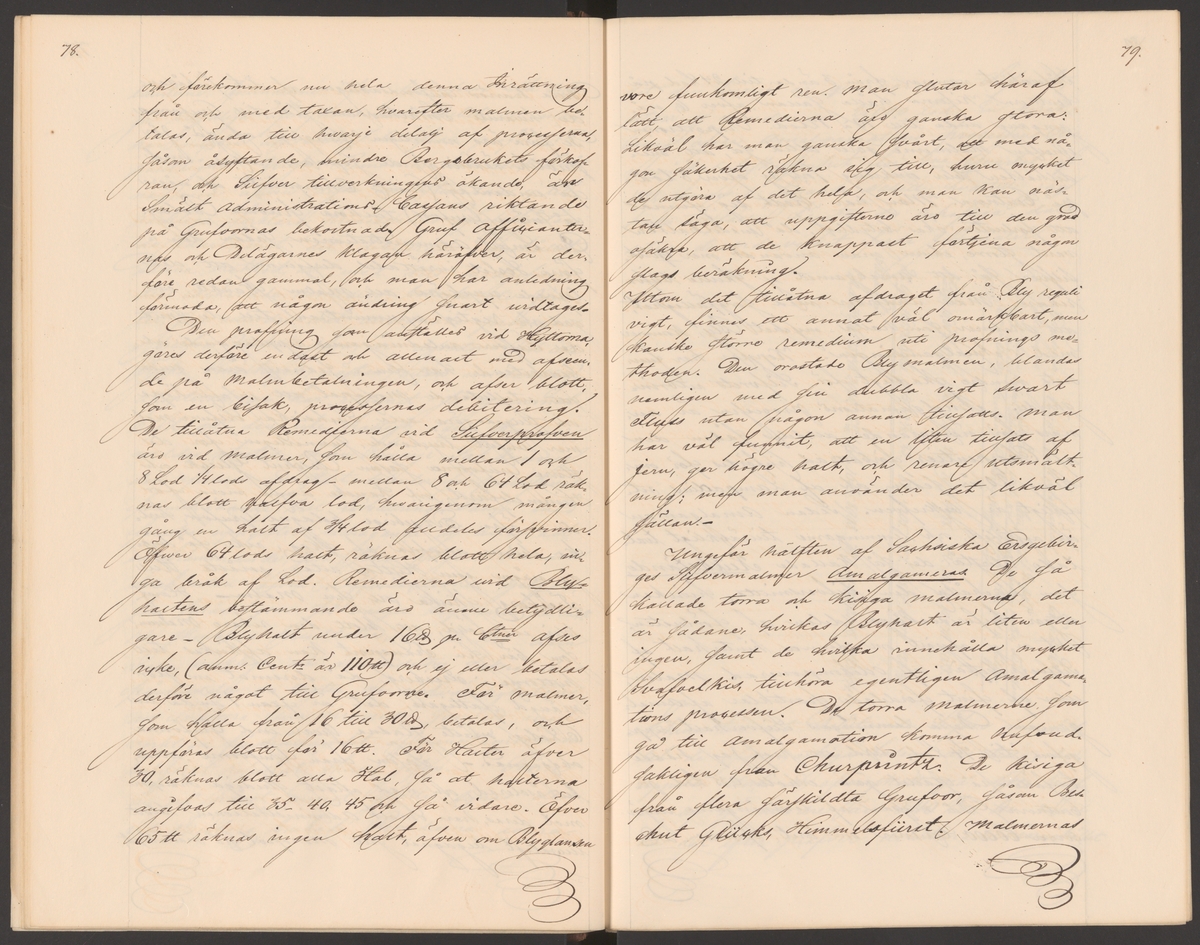 78.
och förekommer nu hela denna Inrättning
från och med taxan, hvarefter malmen be-
talas, ända till hwarje delalj af processerna,
såsom åsyftande, mindre Bergsbrukets förkof-
ran, än Silfver tillverkningens ökande, än
Smält administrations Cassans riktande
på Grufvornas bekostnad. Gruf Officianter-
nas och Delägarnes klagan häröfver, är der-
före redan gammal, och man har anledning
förmoda, att någon ändring snart widtages.
Den profning som anställes vid Hyttorna,
göres derföre endast och allenast med afseen-
de på Malmbetalningen, och afser blott,
som en bisak, processernas debitering.
De tillåtna Remedierna vid Silfverprofven
äro vid malmer, som hålla mellan 1 och
8 Lod 1/4 lods afdrag – mellan 8 och 64 Lod räk-
nas blott halfva lod, hwarigenom mången
gång en halt af 3/4 lod förswinner.
Öfwer 64 lods halt, räknas blott hela, in-
ga bråk af Lod. Remedierna wid Bly-
haltens bestämmande äro ännu betydli-
gare – Blyhalt under 16 ℔ pr Ctner afses
icke, (anm. Centr är 110 ℔) och ej eller betalas
derföre något till Grufvorne. För malmer,
som hålla från 16 till 30 ℔, betalas, och
uppföras blott för 16 ℔. För Halter öfver
30, räknas blott alla Hal, så at halterna
angifvas till 35– 40, 45 och så vidare. Öfver
65 ℔ räknas ingen halt, äfven om Blyglansen
79.
vore fullkomligt ren. Man slutar häraf
lätt att Remedierna äro ganska stora:
Likväl har man ganska svårt, att med nå-
gon säkerhet räkna sig till, huru mycket
de utgöra af det hela, och man kan näs-
tan säga, att uppgifterne äro till den grad
osäkra, att de knappast förtjena någon
slags beräkning.
Utom det tillåtna afdraget från Bly reguli
vigt, finnes ett annat väl omärkbart, men
kanske större remedium uti profnings me-
thoden. Den orostade Blymalmen, blandas
nemligen med sin dubbla vigt swart
Fluss utan någon annan tillsatts. Man
har väl funnit, att en liten tillsats af
Jern, ger högre halt, och renare utsmält-
ning; men man använder det likväl
sällan.–
Ungefär hälften af Sachsiska Erzgebir-
ges Silfvermalmer Amalgameras. De så
kallade torra och kisiga malmerna, det
är sådane, hvilkas Blyhart är liten eller
ingen, samt de hvilka innehålla mycket
Svafvelkis, tillhöra egentligen Amalgama-
tions processen. De torra malmerne, som
gå till Amalgamation komma hufvud-
sakligen från Churprintz. De kisiga
från flera särskildta Grufvor, såsom Bes-
chert Glücks, Himmelsfürst. Malmernas